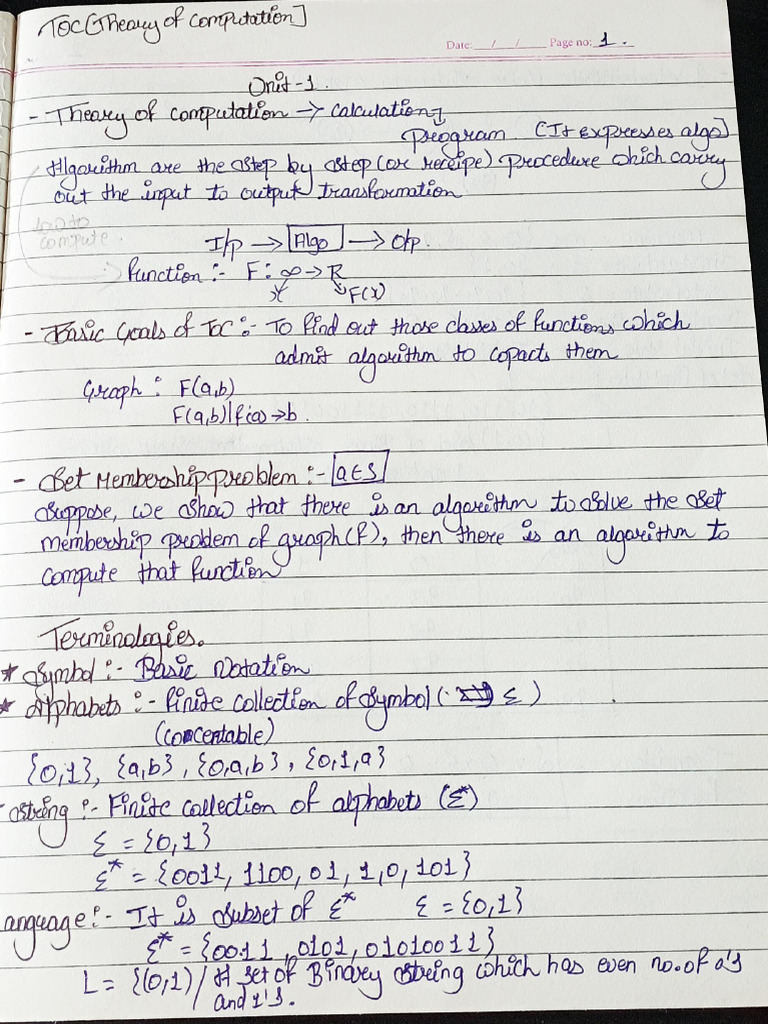 TOC[Theory of Computation]
Date: __/__/__ Page no: 1.
Unit-1.
- Theory of computation → calculation
Program [It expresses algo]
Algorithm are the step by step (or receipe) procedure which carry
out the input to output transformation
compute.
I/p → Algo → O/p.
Function :- F: ∞ → R
x F(x)
- Basic Goals of TOC :- To find out those classes of functions which
admit algorithm to copacts them
Graph : F(a,b)
F(a,b)|f(a)→b.
- Set Membership problem :- a∈S
Suppose, we show that there is an algorithm to solve the set
membership problem of graph(f), then there is an algorithm to
compute that function
Terminologies.
* Symbol :- Basic Notation
* Alphabets :- finite collection of symbol ( Σ )
(concentable)
{0,1}, {a,b}, {0,a,b}, {0,1,a}
- String :- Finite collection of alphabets (Σ*)
Σ = {0,1}
Σ* = {0011, 1100, 01, 1, 0, 101}
anguage :- It is subset of Σ* Σ = {0,1}
Σ* = {0011, 0101, 01010011}
L = {(0,1) / A set of Binary string which has even no. of 0's
and 1's.